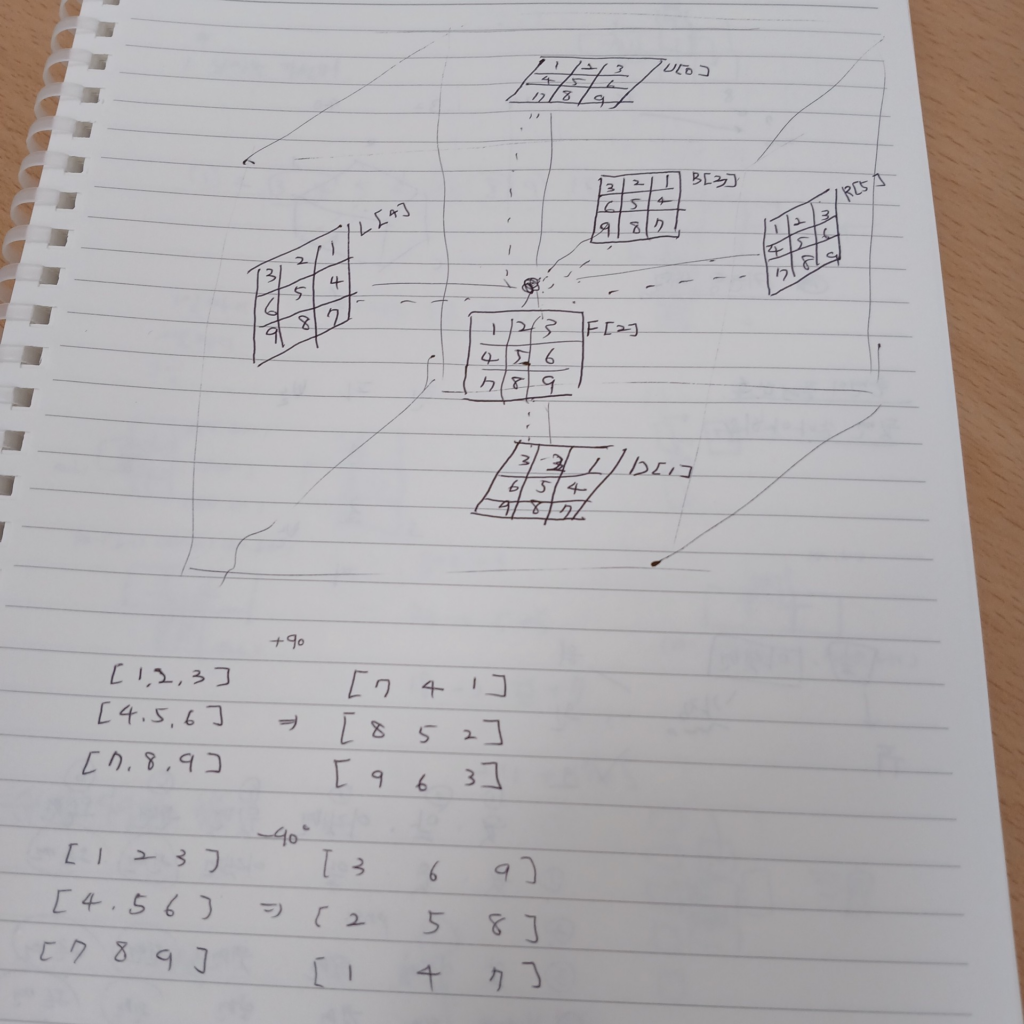 1 2 3 U[0]
4 5 6
7 8 9
3 2 1 B[3]
6 5 4
9 8 7
3 2 1 L[4]
6 5 4
9 8 7
1 2 3 R[5]
4 5 6
7 8 9
1 2 3 F[2]
4 5 6
7 8 9
3 2 1 D[1]
6 5 4
9 8 7
+90
[1,2,3] [7 4 1]
[4.5,6] ⇒ [8 5 2]
[7,8,9] [9 6 3]
-90°
[1 2 3] [3 6 9]
[4.5 6] ⇒ [2 5 8]
[7 8 9] [1 4 7]